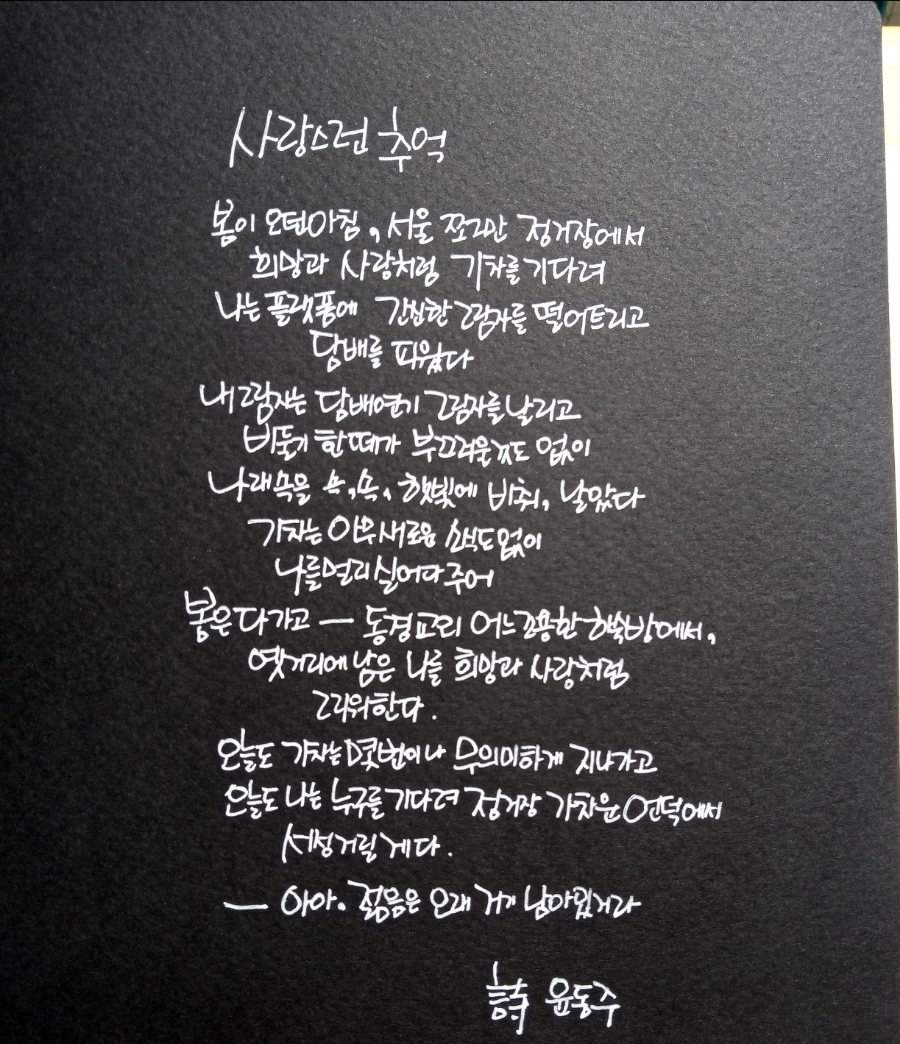 사랑스런 추억
봄이 오던아침, 서울 쪼그만 정거장에서
희망과 사랑처럼 기차를 기다려
나는 플랫폼에 간신한 그림자를 떨어트리고
담배를 피웠다
내 그림자는 담배연기 그림자를 날리고
비둘기 한떼가 부끄러울것도 없이
나래속을 속, 속, 햇빛에 비춰, 날았다
기차는 아무새로운 소식도없이
나를멀리실어다주어
봄은 다가고 — 동경교외 어느조용한 하숙방에서,
옛거리에 남은 나를 희망과 사랑처럼
그리워한다.
오늘도 기차는 몇번이나 무의미하게 지나가고
오늘도 나는 누구를 기다려 정거장 가차운 언덕에서
서성거릴 게다.
— 아아. 젊음은 오래 거기 남아있거라
詩 윤동주